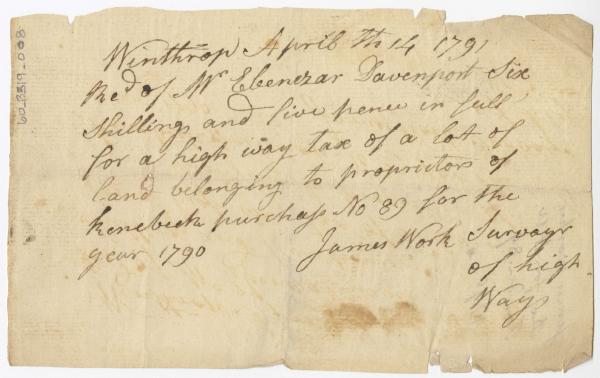 Winthrop April th 14 1791
Recd of Mr Ebenezar Davenport Six
Shillings and five pence in full
for a high way tax of a Lot of
land belonging to proprietors of
Kenebeck purchass No 89 for the
year 1790 James Work Survayr
of high
Ways
60_3319_008